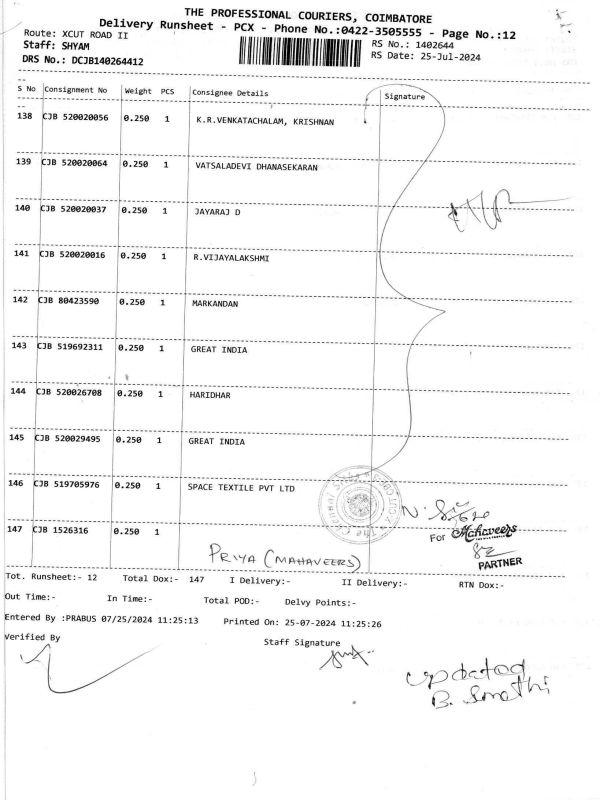 THE PROFESSIONAL COURIERS, COIMBATORE
Delivery Runsheet - PCX - Phone No.:0422-3505555 - Page No.:12
Route: XCUT ROAD II
Staff: SHYAM
DRS No.: DCJB140264412
RS No.: 1402644
RS Date: 25-Jul-2024
S No Consignment No Weight PCS Consignee Details Signature
138 CJB 520020056 0.250 1 K.R.VENKATACHALAM, KRISHNAN
139 CJB 520020064 0.250 1 VATSALADEVI DHANASEKARAN
140 CJB 520020037 0.250 1 JAYARAJ D
141 CJB 520020016 0.250 1 R.VIJAYALAKSHMI
142 CJB 80423590 0.250 1 MARKANDAN
143 CJB 519692311 0.250 1 GREAT INDIA
144 CJB 520026708 0.250 1 HARIDHAR
145 CJB 520029495 0.250 1 GREAT INDIA
146 CJB 519705976 0.250 1 SPACE TEXTILE PVT LTD
147 CJB 1526316 0.250 1
For Mahaveers
PARTNER
PRIYA (MAHAVEERS)
Tot. Runsheet:- 12 Total Dox:- 147 I Delivery:- II Delivery:- RTN Dox:-
Out Time:- In Time:- Total POD:- Delvy Points:-
Entered By :PRABUS 07/25/2024 11:25:13 Printed On: 25-07-2024 11:25:26
Verified By Staff Signature
Updated